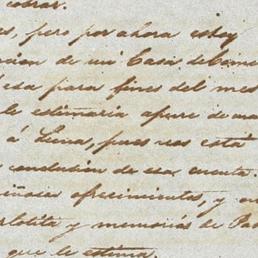 cobrar.
es, pero por ahora estoy
cion de mi Casa
esa para fines del mes
le estimaria apure de
á Luna, pues nos está
conclusion de esa cuenta.
ofrecimientos, y
lotita y memorias de
que le estima.